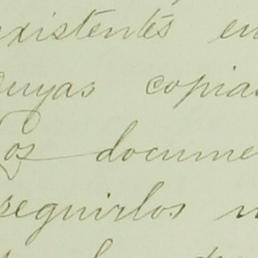 existentes en
cuyas copia
Los docume
seguirlos